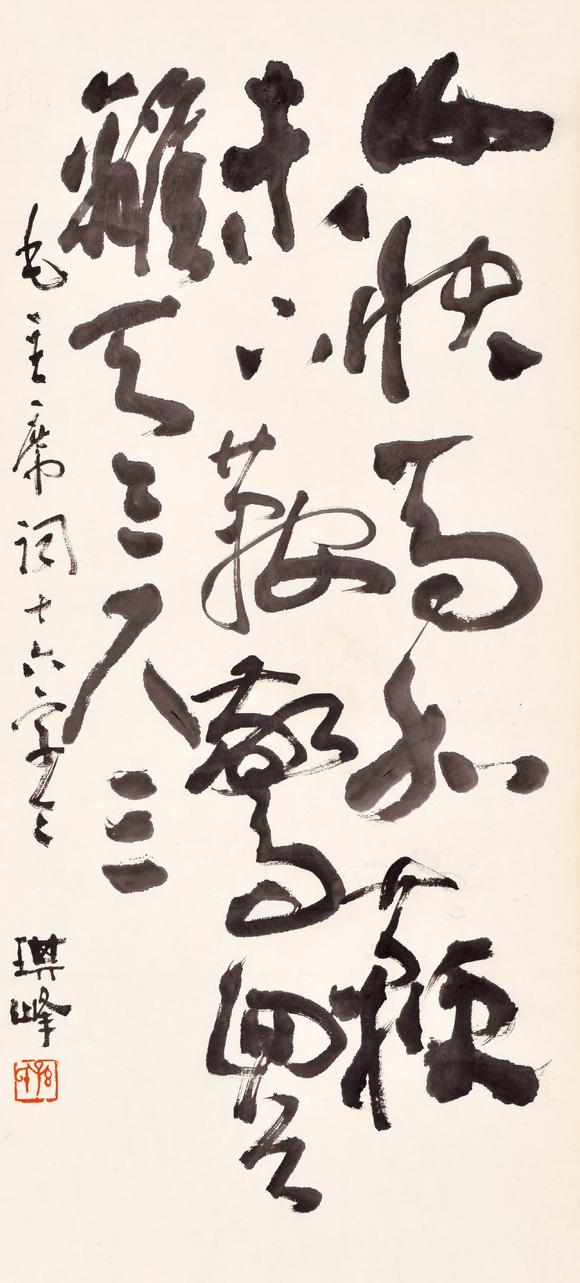 山快馬加鞭
未下鞍驚回首
離天三尺三
毛主席詞十六字令
琪峰